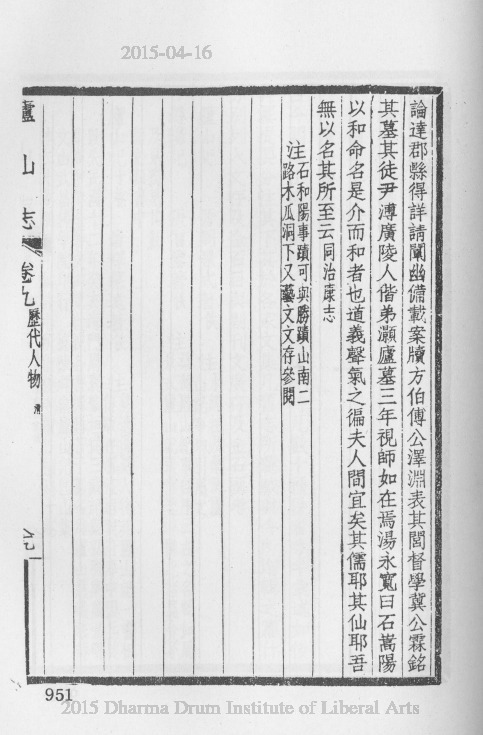 2015-04-16
論達郡縣得詳請闡幽備載案牘方伯傅公澤淵表其閭督學冀公霖銘
其墓其徒尹溥廣陵人偕弟灝廬墓三年視師如在焉湯永寬曰石嵩陽
以和命名是介而和者也道義聲氣之徧夫人間宜矣其儒耶其仙耶吾
無以名其所至云同治康志
注石和陽事蹟可與勝蹟山南二
路木瓜洞下又藝文文存參閱
廬山志
卷九
歷代人物
清
951
2015 Dharma Drum Institute of Liberal Arts